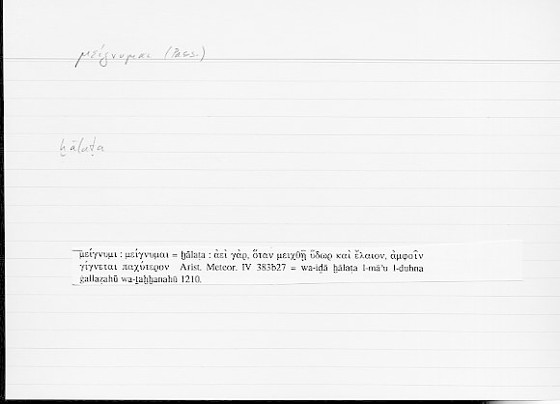 μείγνυμαι (Pass.)
ḫālaṭa
μείγνυμι : μείγνυμαι = ḫālaṭa : ἀεὶ γὰρ, ὅταν μειχθῇ ὕδωρ καὶ ἔλαιον, ἀμφοῖν
γίγνεται παχύτερον Arist. Meteor. IV 383b27 = wa-iḏā ḫālaṭa l-mā'u l-duhna
ġallaẓahū wa-ṯaḫḫanahū 1210.